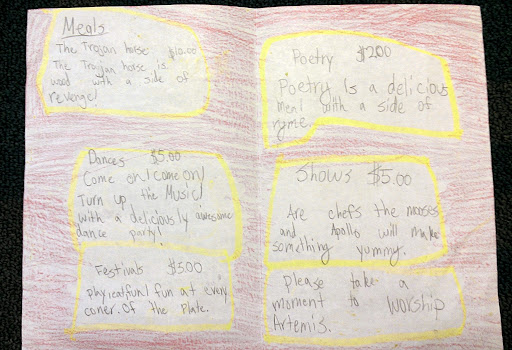 Meals
The Trojan horse $10.00
The Trojan horse is
wood with a side of
revenge!
Dances $5.00
Come on! come on!
Turn up the Music!
with a deliciously awesome
dance party!
Festivals $15.00
playicatfun! fun at every
coner. Of the Plate.
Poetry $2.00
Poetry Is a delicious
meal with a side of
ryme.
Shows $5.00
Are chefs the mooses
and Apollo will make
something yummy.
Please take a
moment to worship
Artemis.